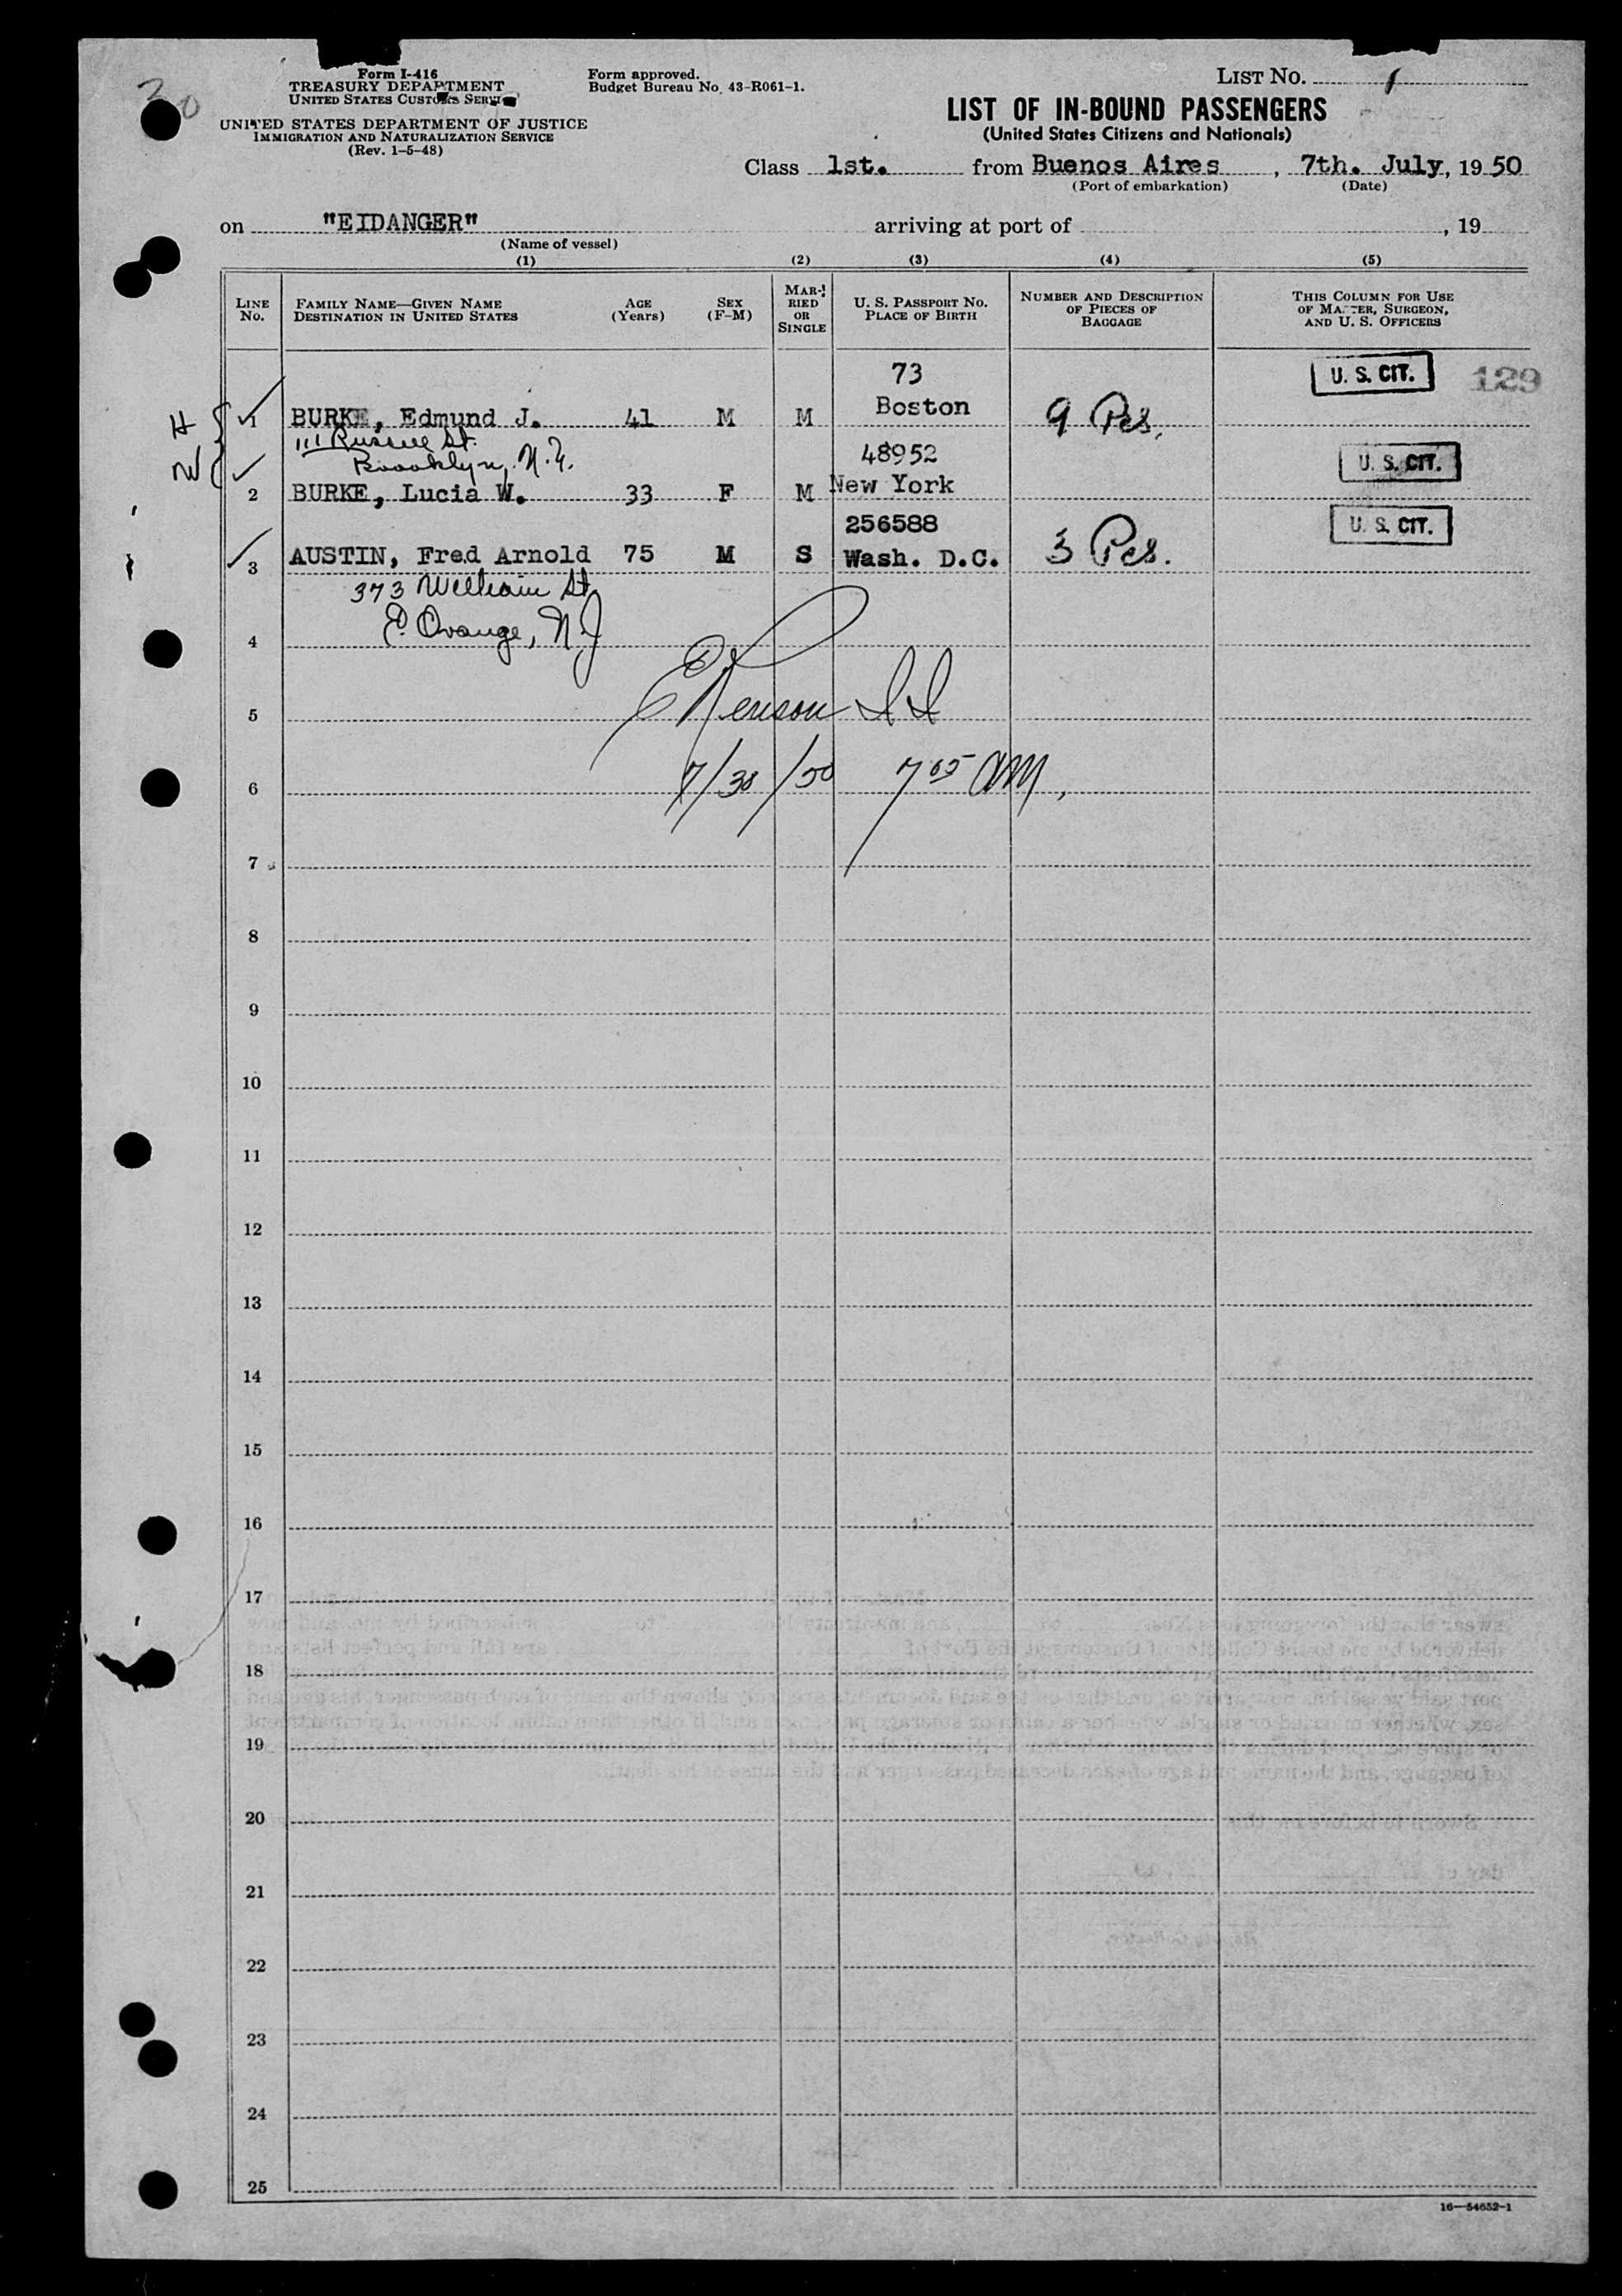 30
Form I-416
TREASURY DEPARTMENT
UNITED STATES CUSTOMS SERVICE
UNITED STATES DEPARTMENT OF JUSTICE
IMMIGRATION AND NATURALIZATION SERVICE
(Rev. 1-5-48)
Form approved.
Budget Bureau No. 43-R061-1.
LIST No. 1
LIST OF IN-BOUND PASSENGERS
(United States Citizens and Nationals)
Class 1st. from Buenos Aires, 7th. July, 19 50
(Port of embarkation) (Date)
on "EIDANGER" arriving at port of , 19
(Name of vessel)
(1) (2) (3) (4) (5)
LINE No. FAMILY NAME—GIVEN NAME DESTINATION IN UNITED STATES AGE (Years) SEX (F-M) MARRIED OR SINGLE U. S. PASSPORT No. PLACE OF BIRTH NUMBER AND DESCRIPTION OF PIECES OF BAGGAGE THIS COLUMN FOR USE OF MASTER, SURGEON, AND U. S. OFFICERS
73 U. S. CIT. 129
H 1 BURKE, Edmund J. 41 M M Boston 9 Pcs.
111 Russell St.
Brooklyn, N.Y. 48952 U. S. CIT.
W 2 BURKE, Lucia W. 33 F M New York
256588 U. S. CIT.
3 AUSTIN, Fred Arnold 75 M S Wash. D.C. 3 Pcs.
373 William St.
4 E. Orange, N.J
5
6 7/30/50 7 05 AM,
7
8
9
10
11
12
13
14
15
16
17
18
19
20
21
22
23
24
25
16—54652-1